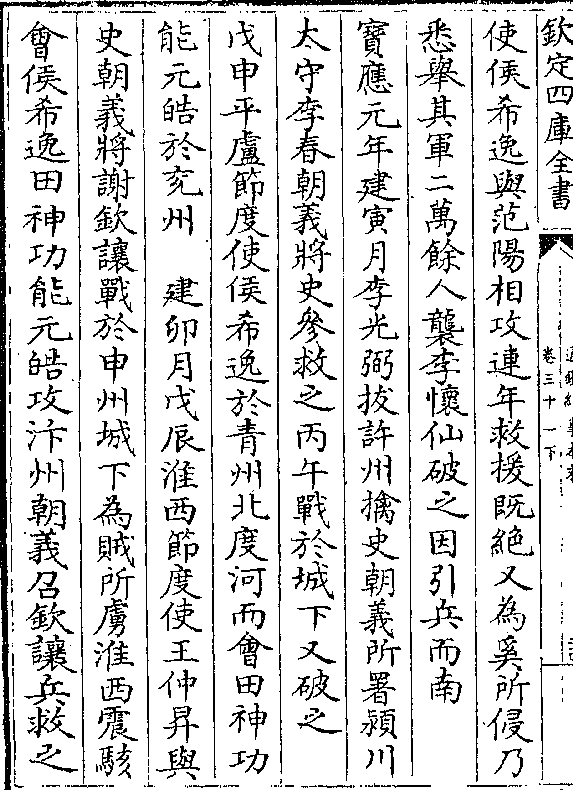 欽定四庫全書
卷三十一下
使侯希逸與范陽相攻連年救援既絕又為奚所侵乃
悉舉其軍二萬餘人襲李懷仙破之因引兵而南
寶應元年建寅月李光弼拔許州擒史朝義所署潁川
太守李春朝義將史參救之丙午戰於城下又破之
戊申平盧節度使侯希逸於青州北度河而會田神功
能元皓於兖州　建卯月戊辰淮西節度使王仲昇與
史朝義將謝欽讓戰於申州城下為賊所虜淮西震駭
會侯希逸田神功能元皓攻汴州朝義召欽讓兵救之